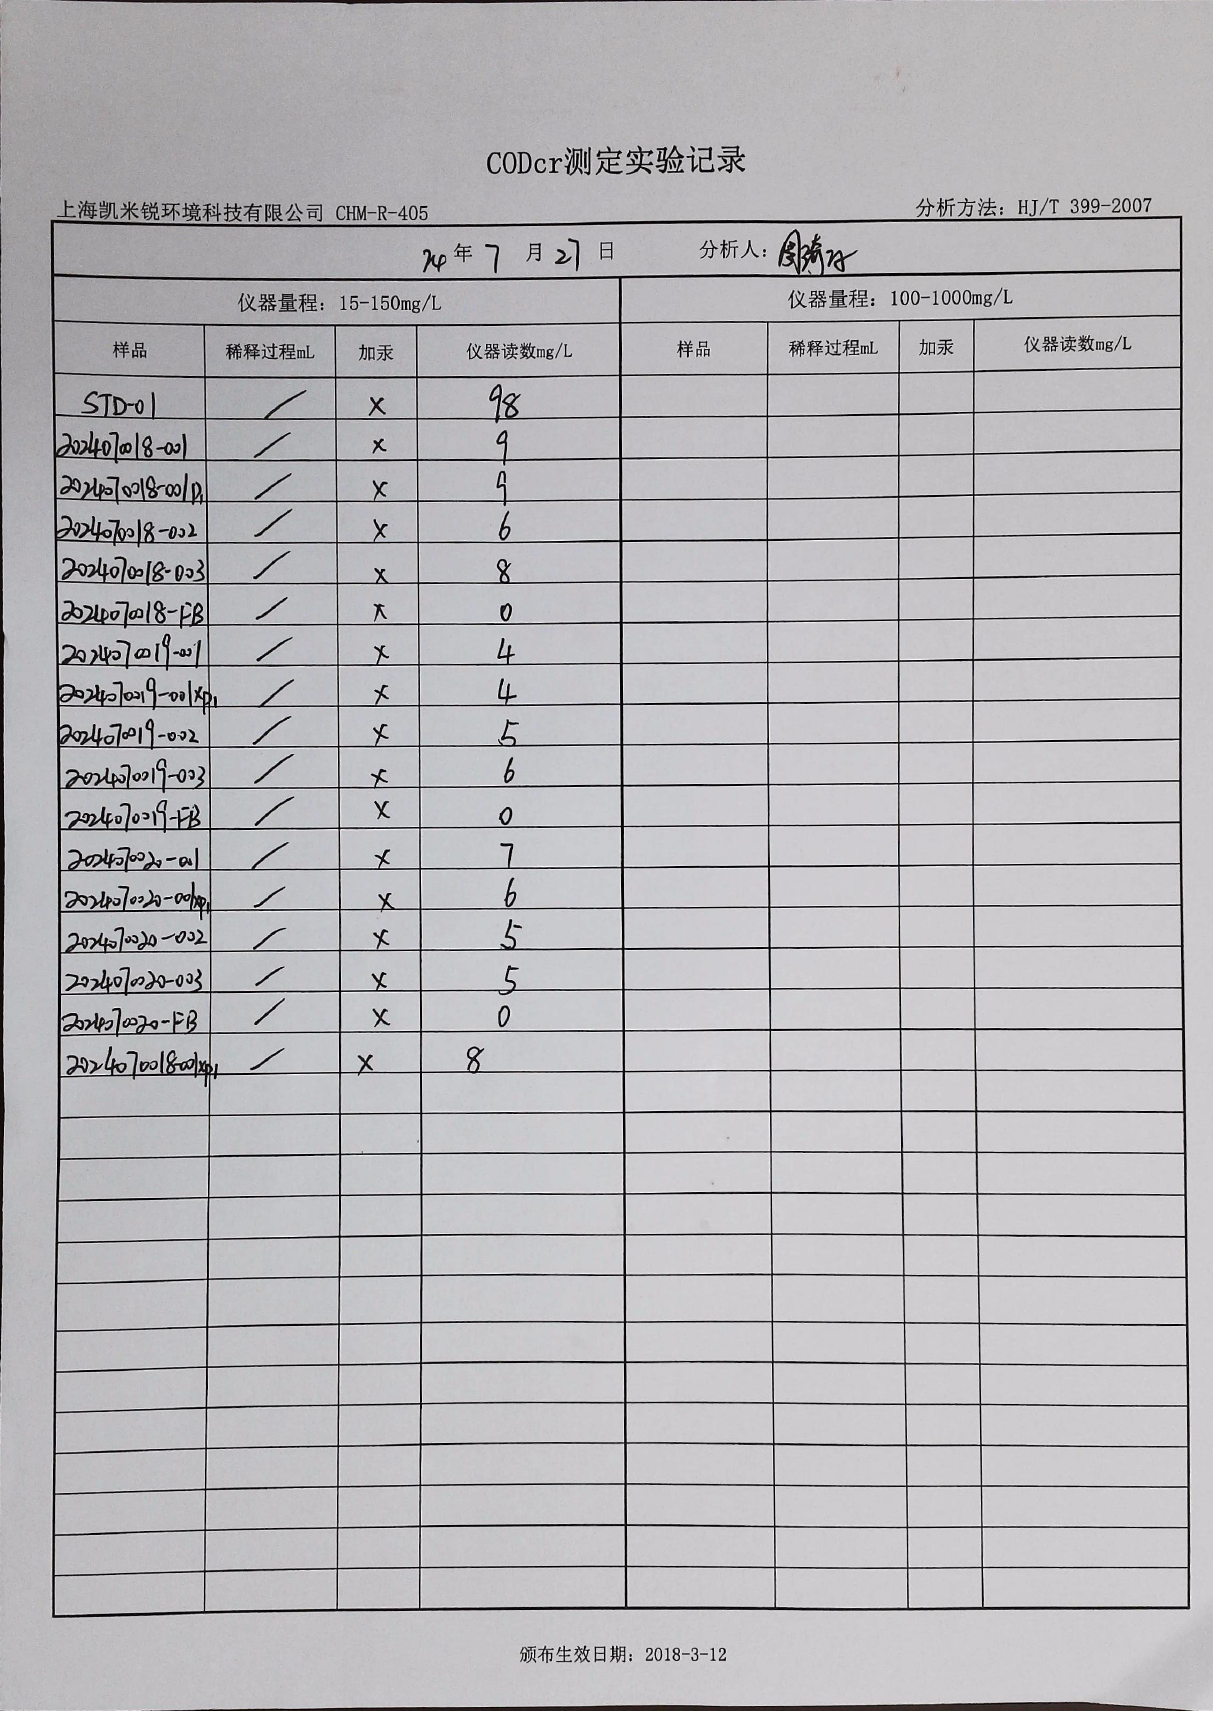 CODcr测定实验记录
上海凯米锐环境科技有限公司 CHM-R-405 分析方法：HJ/T 399-2007
24 年 7 月 27 日 分析人：
仪器量程：15-150mg/L 仪器量程：100-1000mg/L
样品 稀释过程mL 加汞 仪器读数mg/L 样品 稀释过程mL 加汞 仪器读数mg/L
STD-01 / × 98
2024070018-001 / × 9
2024070018-001P1 / × 9
2024070018-002 / × 6
2024070018-003 / × 8
2024070018-FB / × 0
2024070019-001 / × 4
2024070019-001XP1 / × 4
2024070019-002 / × 5
2024070019-003 / × 6
2024070019-FB / × 0
2024070020-001 / × 7
2024070020-001XP1 / × 6
2024070020-002 / × 5
2024070020-003 / × 5
2024070020-FB / × 0
2024070018-001XP1 / × 8
颁布生效日期：2018-3-12